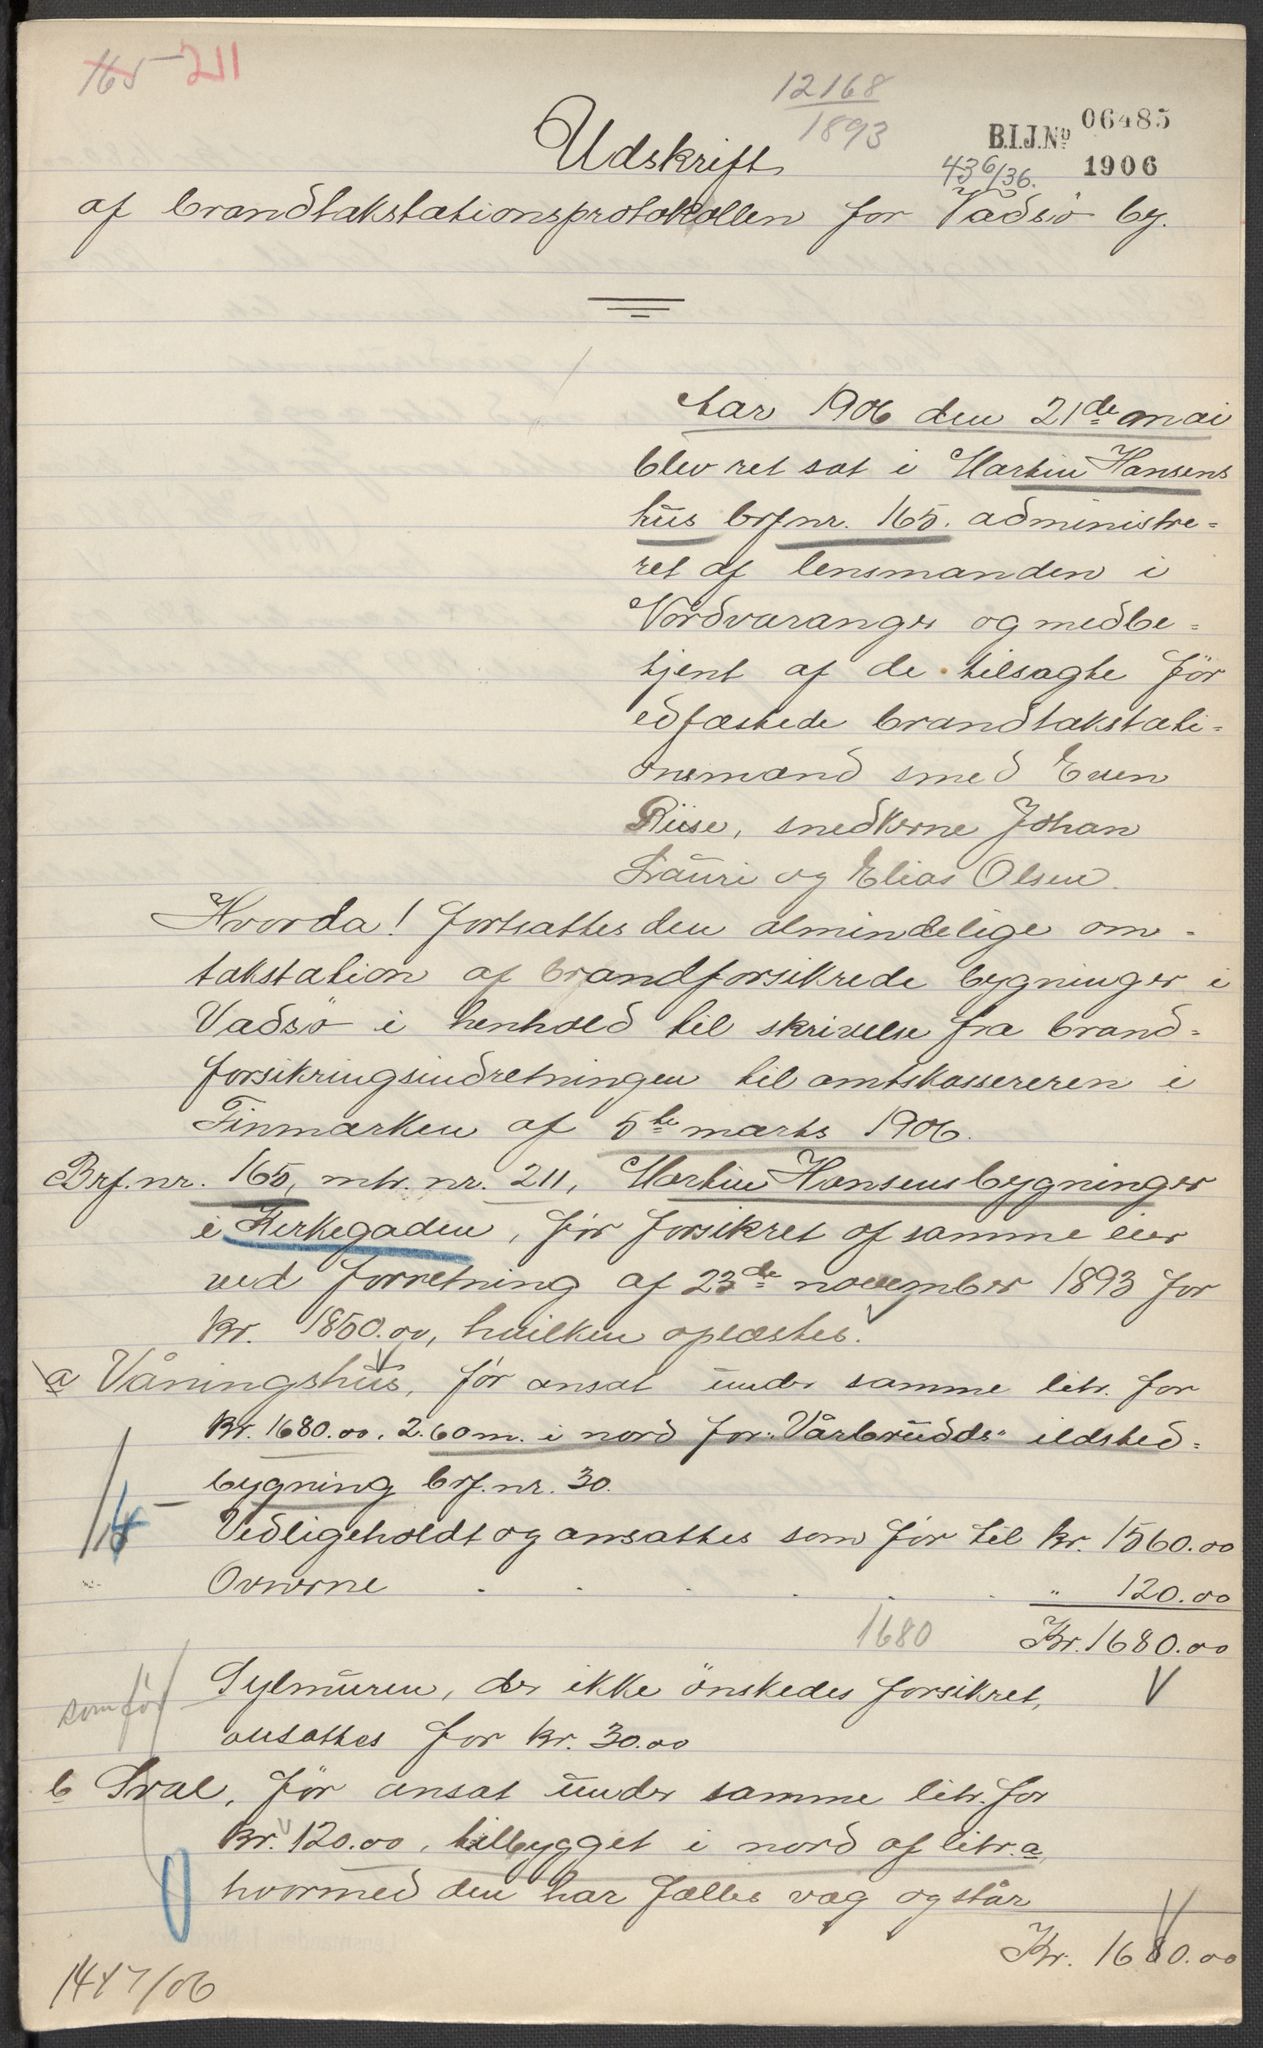 165 – 211
12168
1893
B.I.J.Nº 06485
1906
436/36.
Udskrift
af brandtakstationsprotokollen for Vadsö by.
Aar 1906 den 21de mai
blev ret sat i Martin Hansens
hus brf.nr. 165. administre=
ret af lensmanden i
Nordvaranger og medbe=
tjent af de tilsagte før
edfæstede brandtakstati=
onsmænd smed Even
Riise, snedkerne Johan
Lauri og Elias Olsen.
Hvorda! fortsattes den almindelige om=
takstation af brandforsikrede bygninger i
Vadsö i henhold til skrivelse fra brand=
forsikringsindretningen til amtskassereren i
Finmarken af 5te marts 1906.
Brf. nr. 165, mtr. nr. 211, Martin Hansens bygninger
i Kirkegaden, før forsikret af samme eier
ved forretning af 23de november 1893 for
kr. 1850.00, hvilken oplæstes.
a Våningshus, før ansat under samme litr. for
kr. 1680.00. 2.60 m. i nord for "Vårbrudds" ildsted=
bygning brf. nr. 30.
Vedligeholdt og ansattes som før til kr. 1560.00
Ovnerne . . . . . " 120.00
1680 Kr. 1680.00
som før
Sylmuren, der ikke önskedes forsikret,
ansattes for kr. 30.00
b Sval, för ansat under samme litr. for
kr. 120.00, tilbygget i nord af litr. a,
hvormed den har fælles væg og står
Kr. 1680.00
1447/06